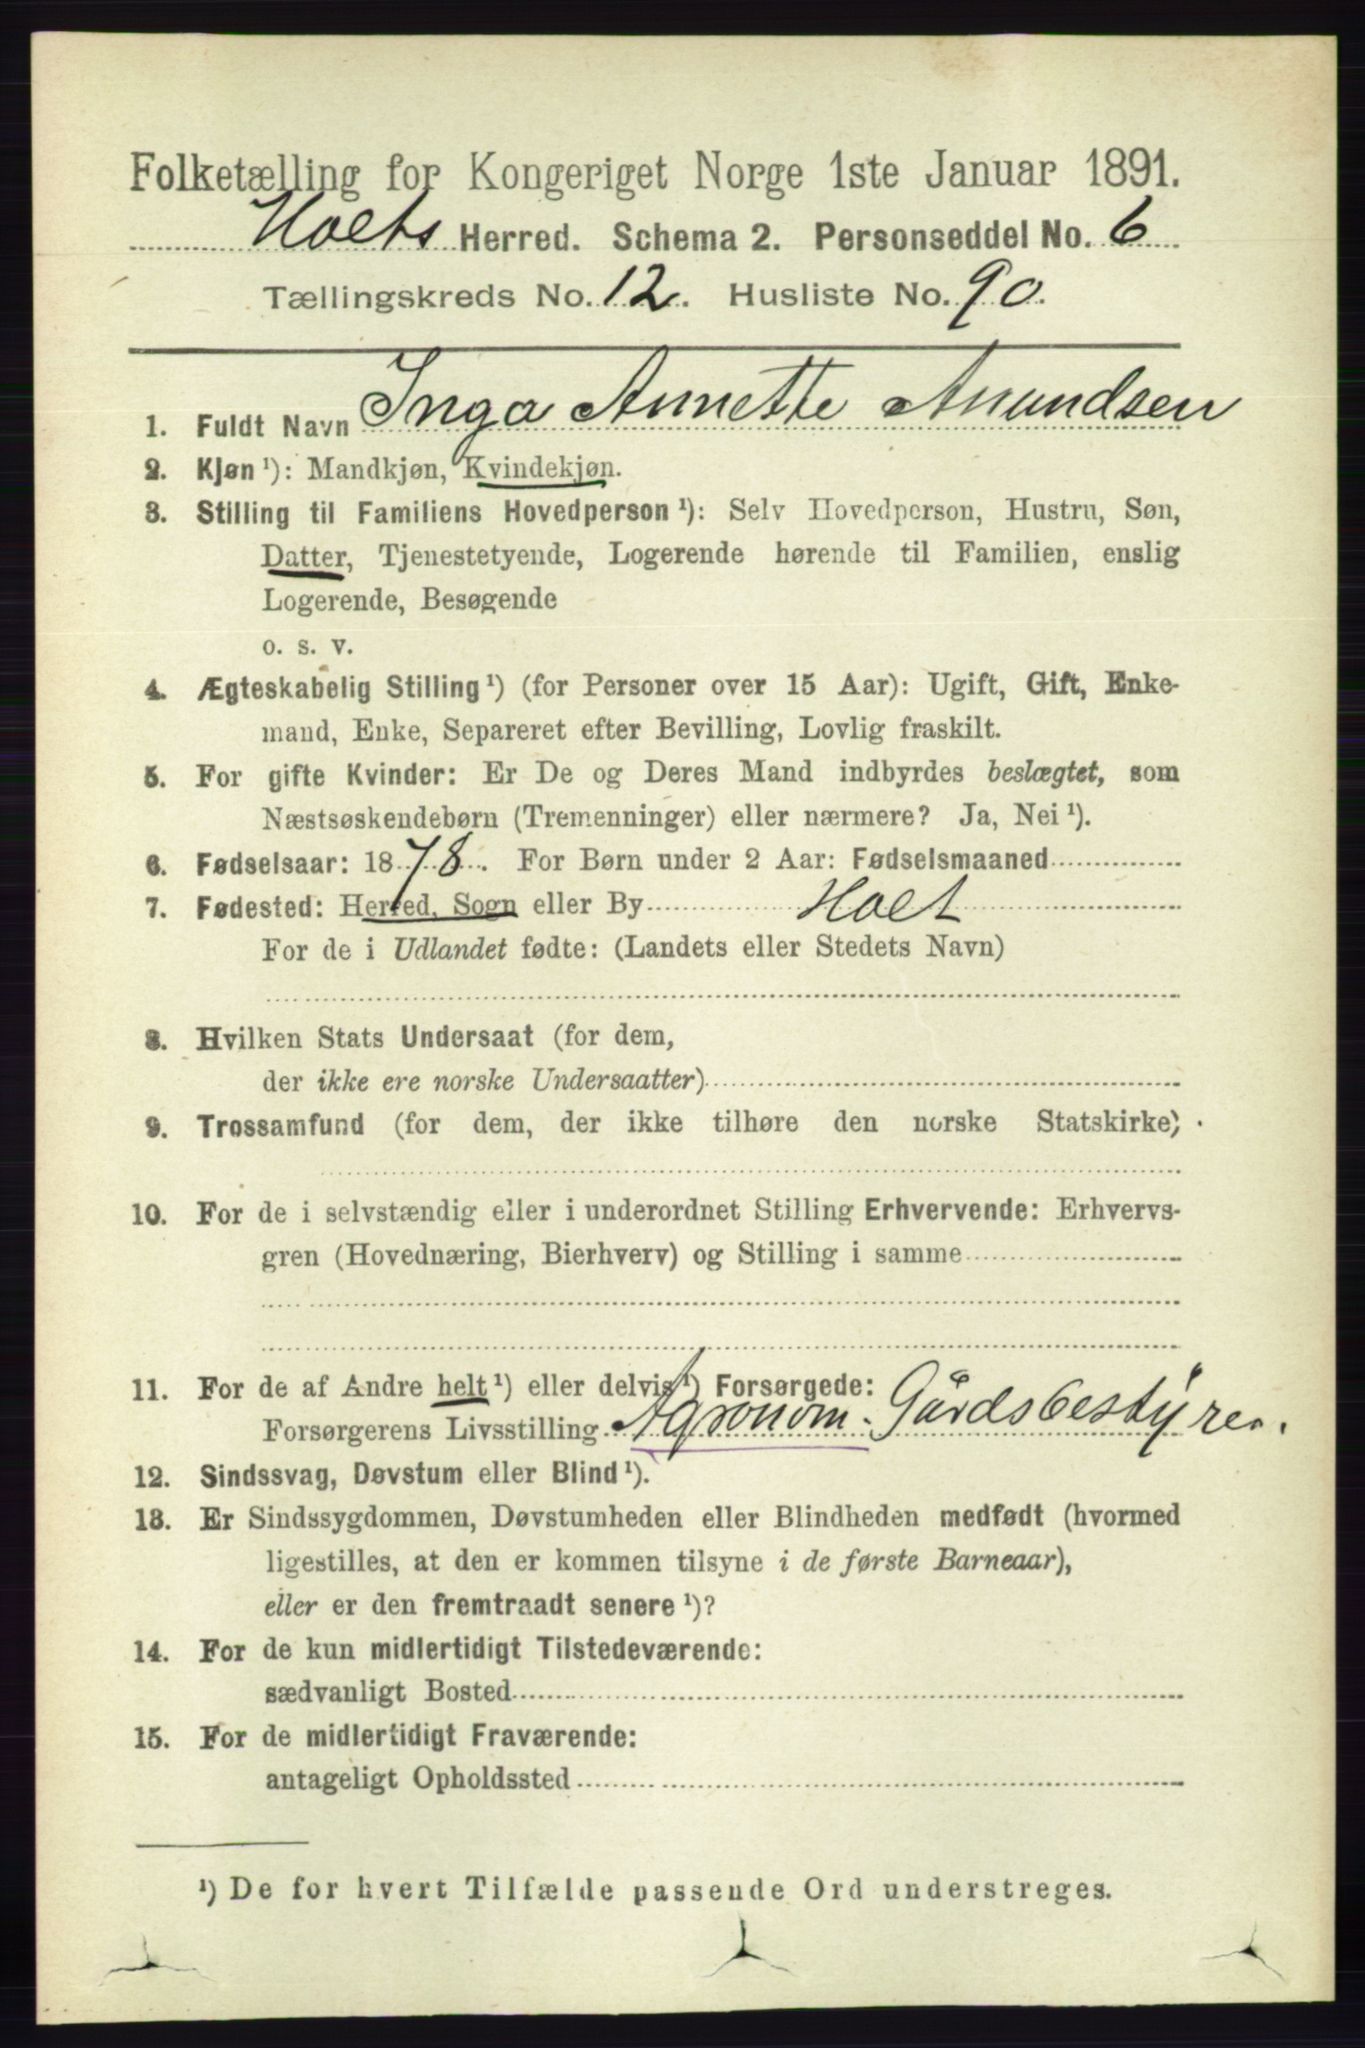 Folketælling for Kongeriget Norge 1ste Januar 1891.
Holts Herred. Schema 2. Personseddel No. 6
Tællingskreds No. 12. Husliste No. 90.
1. Fuldt Navn Inga Annette Anundsen
2. Kjøn ¹): Mandkjøn, Kvindekjøn.
3. Stilling til Familiens Hovedperson ¹): Selv Hovedperson, Hustru, Søn,
Datter, Tjenestetyende, Logerende hørende til Familien, enslig
Logerende, Besøgende
o. s. v.
4. Ægteskabelig Stilling ¹) (for Personer over 15 Aar): Ugift, Gift, Enke-
mand, Enke, Separeret efter Bevilling, Lovlig fraskilt.
5. For gifte Kvinder: Er De og Deres Mand indbyrdes beslægtet, som
Næstsøskendebørn (Tremenninger) eller nærmere? Ja, Nei ¹).
6. Fødselsaar: 1878. For Børn under 2 Aar: Fødselsmaaned
7. Fødested: Herred, Sogn eller By Holt
For de i Udlandet fødte: (Landets eller Stedets Navn)
8. Hvilken Stats Undersaat (for dem,
der ikke ere norske Undersaatter)
9. Trossamfund (for dem, der ikke tilhøre den norske Statskirke)
10. For de i selvstændig eller i underordnet Stilling Erhvervende: Erhvervs-
gren (Hovednæring, Bierhverv) og Stilling i samme
11. For de af Andre helt ¹) eller delvis ¹) Forsørgede:
Forsørgerens Livsstilling Agronom. Gårdsbestyrer.
12. Sindssvag, Døvstum eller Blind ¹).
13. Er Sindssygdommen, Døvstumheden eller Blindheden medfødt (hvormed
ligestilles, at den er kommen tilsyne i de første Barneaar),
eller er den fremtraadt senere ¹)?
14. For de kun midlertidigt Tilstedeværende:
sædvanligt Bosted
15. For de midlertidigt Fraværende:
antageligt Opholdssted
¹) De for hvert Tilfælde passende Ord understreges.